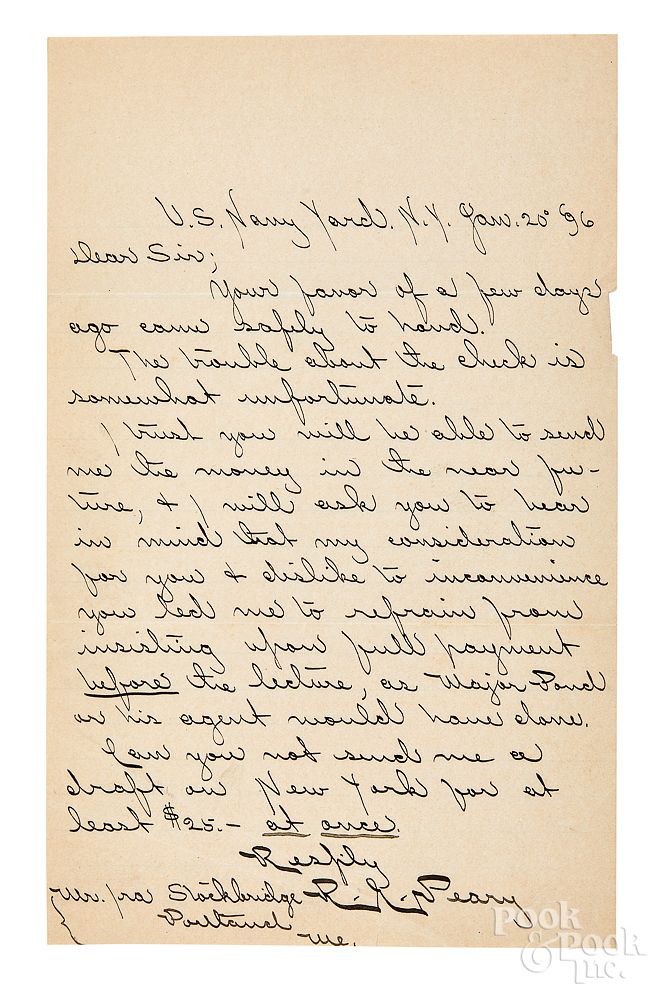 U.S. Navy Yard. N.Y. Jan. 20" 96
Dear Sir;
Your favor of a few days
ago came safely to hand.
The trouble about the check is
somewhat unfortunate.
I trust you will be able to send
me the money in the near fu-
ture, & I will ask you to bear
in mind that my consideration
for you & dislike to inconvenience
you led me to refrain from
insisting upon full payment
before the lecture, as Major Pond
or his agent would have done.
Can you not send me a
draft on New York for at
least $25.- at once.
Resply
R. E. Peary
Mr. Ira Stockbridge
Portland
Me.
Pook
& Pook
Inc.